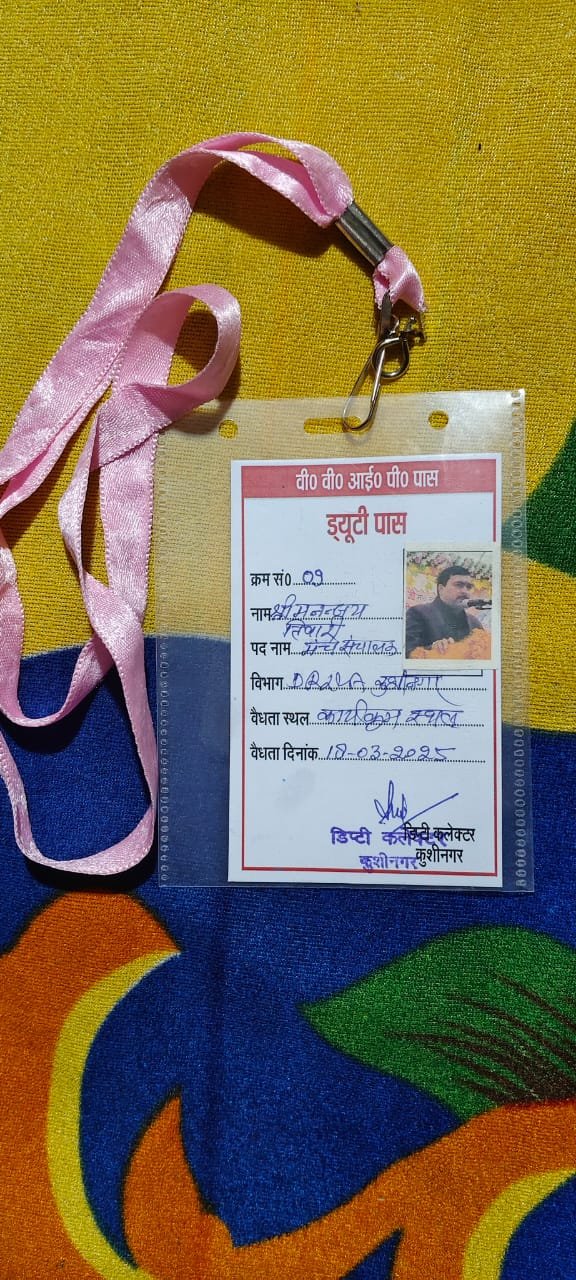 वी० वी० आई० पी० पास
ड्यूटी पास
क्रम सं० 09
नाम श्री मनन्जय
तिवारी
पद नाम मंच संचालक
विभाग DRDA कुशीनगर
वैधता स्थल कार्यक्रम स्थल
वैधता दिनांक 18-03-2025
डिप्टी कलेक्टर
कुशीनगर
डिप्टी कलेक्टर
कुशीनगर